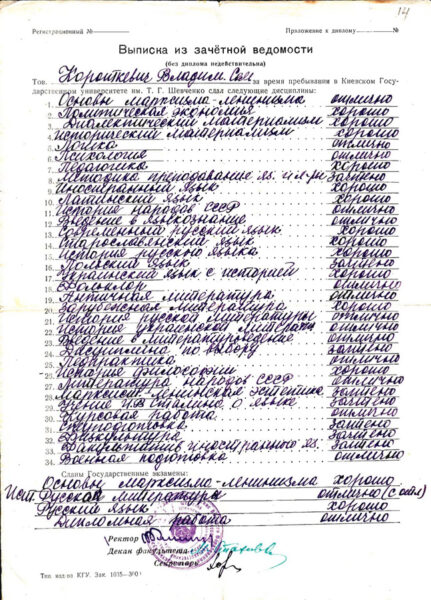 14
Регистрационный №
Приложение к диплому №
Выписка из зачётной ведомости
(без диплома недействительна)
Тов. Короткевич Владим. Сем. за время пребывания в Киевском Госу-
дарственном университете им. Т. Г. Шевченко сдал следующие дисциплины:
1. Основы марксизма-ленинизма отлично
2. Политическая экономия хорошо
3. Диалектический материализм хорошо
4. Исторический материализм хорошо
5. Логика отлично
6. Психология отлично
7. Педагогика хорошо
8. Методика преподавание яз. и л-ры зачтено
9. Иностранный язык хорошо
10. Латинский язык хорошо
11. История народов СССР отлично
12. Введение в языкознание отлично
13. Современный русский язык хорошо
14. Старославянский язык хорошо
15. История русского языка хорошо
16. Польский язык зачтено
17. Украинский язык с историей хорошо
18. Фольклор отлично
19. Античная литература отлично
20. Зарубежная литература хорошо
21. История русской литературы отлично
22. История украинской литерат. отлично
23. Введение в литературоведение отлично
24. Дисциплина по выбору зачтено
25. Педпрактика отлично
26. История философии хорошо
27. Литература народов СССР отлично
28. Марксист. ленинская эстетика зачтено
29. Учение И. В. Сталина о языке зачтено
30. Курсовая работа отлично
31. зачтено
32. Физкультура зачтено
33. Факультатив иностранный яз. зачтено
34. Военная подготовка отлично
Сданы Государственные экзамены:
Основы марксизма-ленинизма хорошо
Ист. Русская литературы отлично
Русский язык хорошо
Дипломная работа отлично
Ректор
Декан факультета
Секретарь
Тип. изд-ва КГУ. Зак. 1035—300